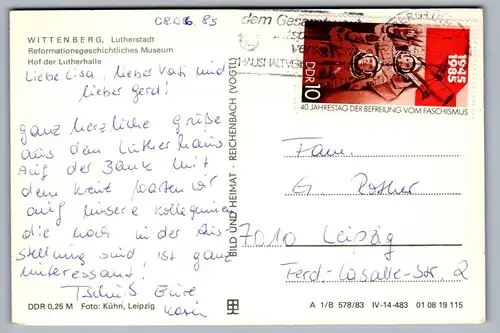 08.06.85
WITTENBERG, Lutherstadt
Reformationsgeschichtliches Museum
Hof der Lutherhalle
Liebe Lisa, lieber Vati und
lieber Gerd!
ganz herzliche Grüße
aus dem Lutherhaus.
Auf der Bank mit
dem Kreuz warten wir
auf unsere Kolleginnen
die noch in der Aus-
stellung sind ist ganz
interessant!
Tschüß Eure
Karin
DDR 0,25 M Foto: Kühn, Leipzig
BILD UND HEIMAT · REICHENBACH (VOGTL)
dem Gesamt
HAUSHALT
DDR 10
1945
1985
40. JAHRESTAG DER BEFREIUNG VOM FASCHISMUS
Fam.
G. Rother
7010 Leipzig
Ferd.-Lasalle-Str. 2
A 1/B 578/83 IV-14-483 01 08 19 115